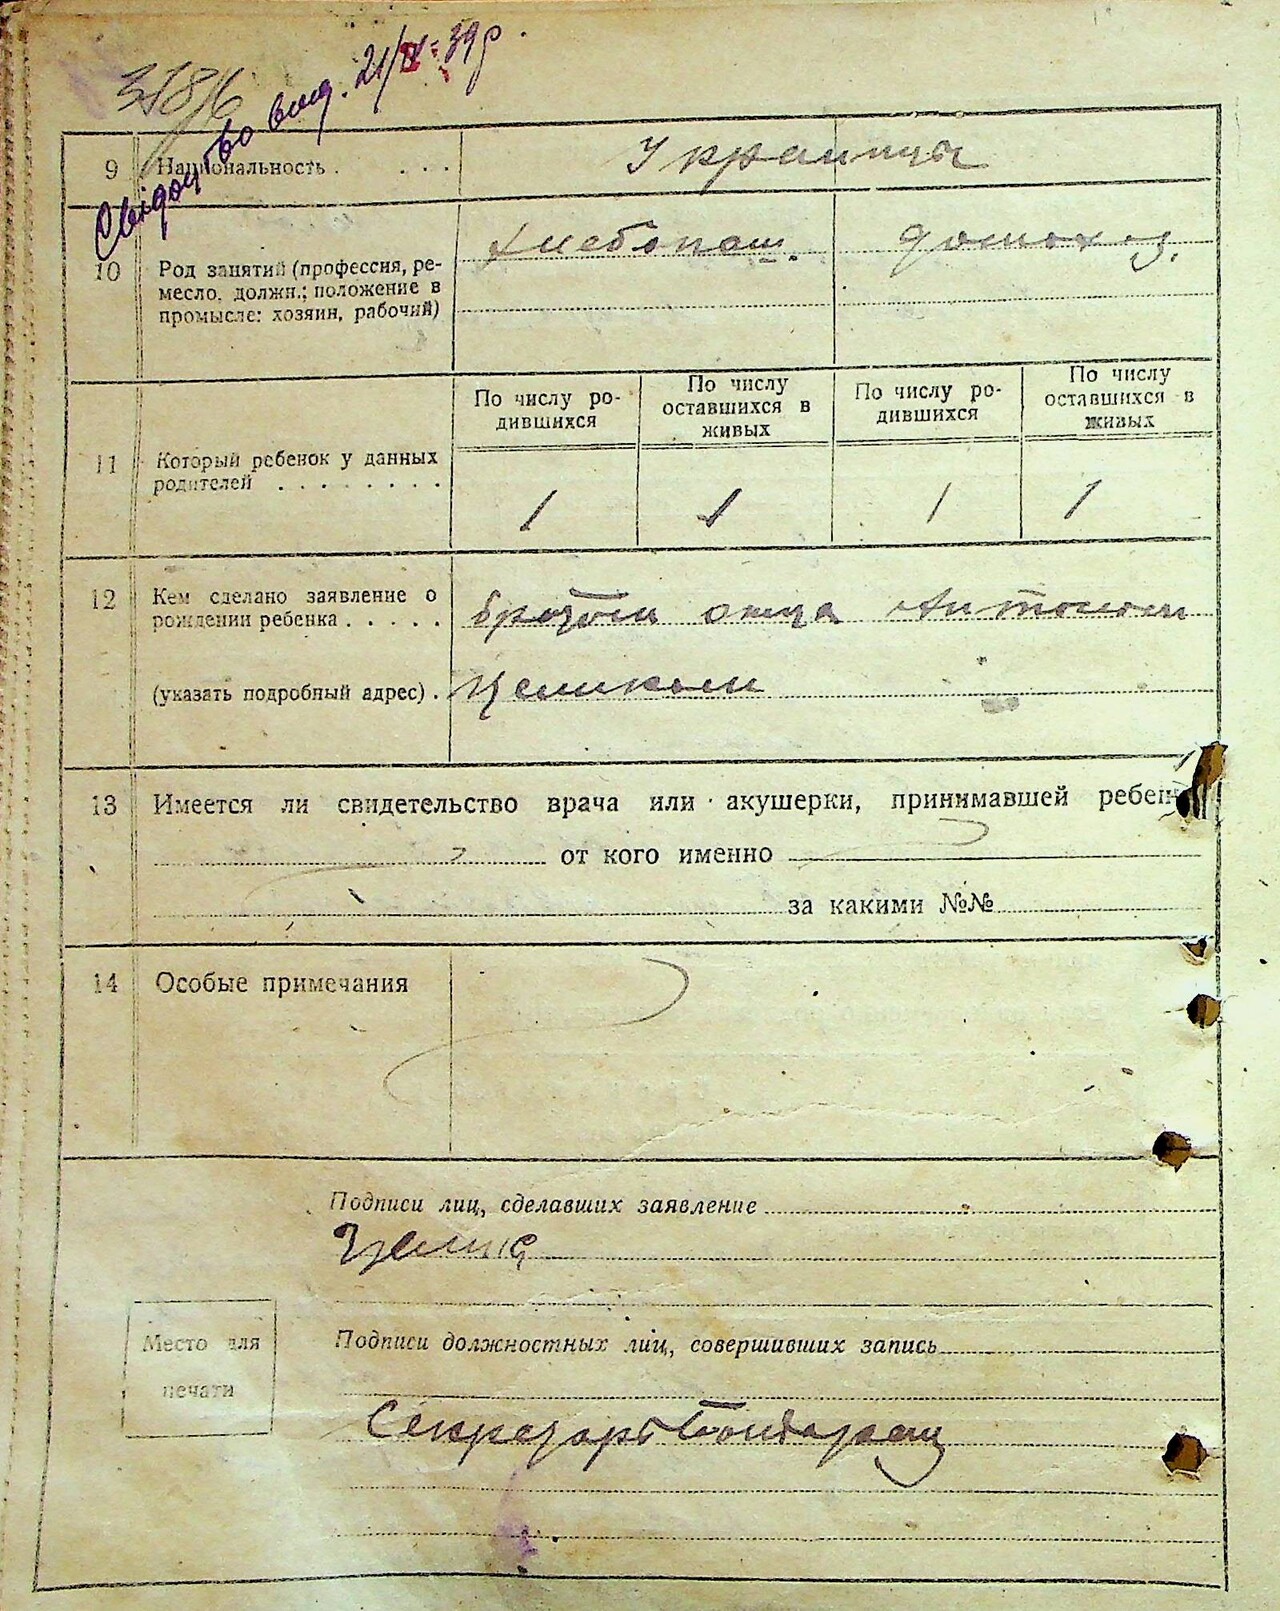 Свідоцтво вид. 21/IX-39р.
9 Национальность . . . . Украинцы
хлебопаш. домохоз.
10 Род занятий (профессия, ре-
месло, должн.; положение в
промысле: хозяин, рабочий)
По числу ро-
дившихся
По числу
оставшихся в
живых
По числу ро-
дившихся
По числу
оставшихся в
живых
11 Который ребенок у данных
родителей . . . . . . . .
1 1 1 1
12 Кем сделано заявление о
рождении ребенка . . . . . братом отца Антоном
(указать подробный адрес) .
13 Имеется ли свидетельство врача или акушерки, принимавшей
от кого именно
за какими №№
14 Особые примечания
Подписи лиц, сделавших заявление
Место для
печати
Подписи должностных лиц, совершивших запись
Секретарь Бондарец